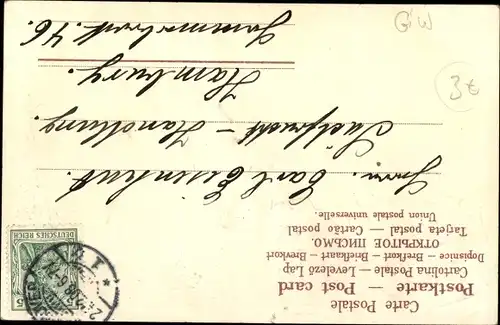 Carte Postale
Postkarte — Post card
Cartolina Postale — Levelező Lap
Dopisnice — Brefkort — Briefkaart — Brevkort
ОТКРЫТОЕ ПИСЬМО.
Tarjeta postal — Cartão postal
Union postale universelle.
Herrn. Carl Eisenhut.
Südfrucht — Handlung.
Hamburg.
46.
DEUTSCHES REICH
5
G/W
3€